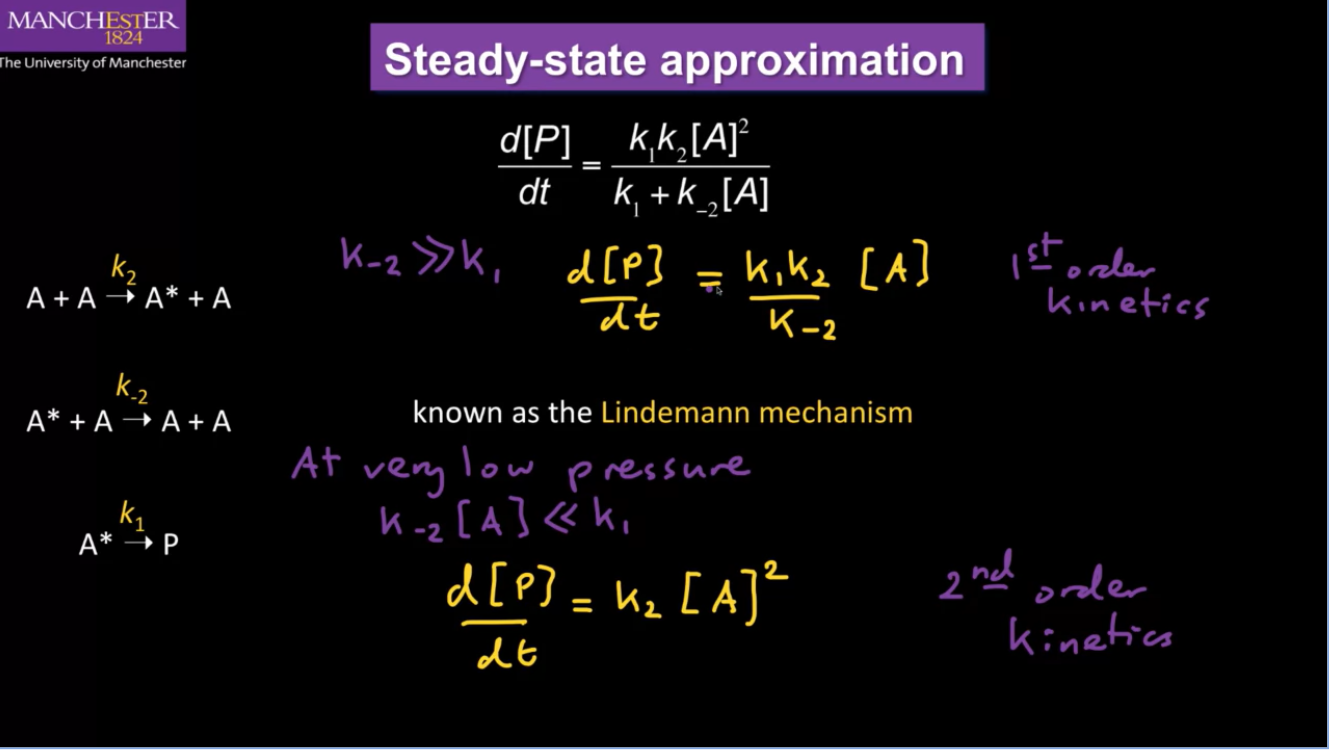 MANCHESTER
1824
The University of Manchester
Steady-state approximation
d[P]/dt = k₁k₂[A]²/k₁ + k₋₂[A]
k₋₂ ≫ k₁ d[P]/dt = k₁k₂/k₋₂ [A] 1st order
kinetics
k₂
A + A → A* + A
k₋₂
A* + A → A + A
known as the Lindemann mechanism
At very low pressure
k₋₂[A] ≪ k₁
k₁
A* → P
d[P]/dt = k₂[A]² 2nd order
kinetics